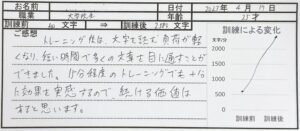 お名前
日付 2023年4月19日
職業 大学院生
年齢 25才
訓練前 文字 ⇒ 訓練後 文字
ご感想
訓練による変化
文字/分
トレーニング後は、大学で読む負荷が軽
くなり、短い時間で多くの文章を目に通すことが
できました。15分程度のトレーニングでも十分
に効果を実感するので、続ける価値は
あると思います。
訓練前
訓練後